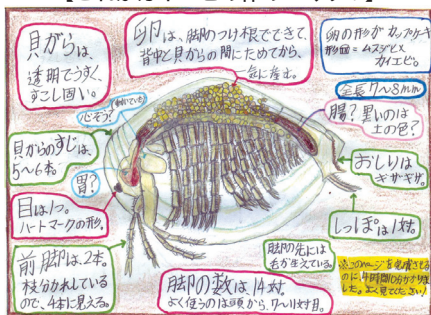 貝がらは、
透明でうすく、
すこし固い。
卵は、脚のつけ根でできて、
背中と貝がらの間にためてから、
一気に産む。
卵の形がカップケーキ
形曲=ムスジヒメ
カイエビ。
全長7〜8mm
動いている
心ぞう?
腸?黒いのは
土の色?
貝がらのすじは、
5〜6本。
胃?
おしりは
ギザギザ。
目は1つ。
ハートマークの形。
しっぽは1対。
前脚は、2本。
枝分かれしている
ので、4本に見える。
脚の先には
毛が生えている。
脚の数は14対
よく使うのは頭から、7〜11対目。
※このページを完成させる
のに、4時間
ました。よく見てください!